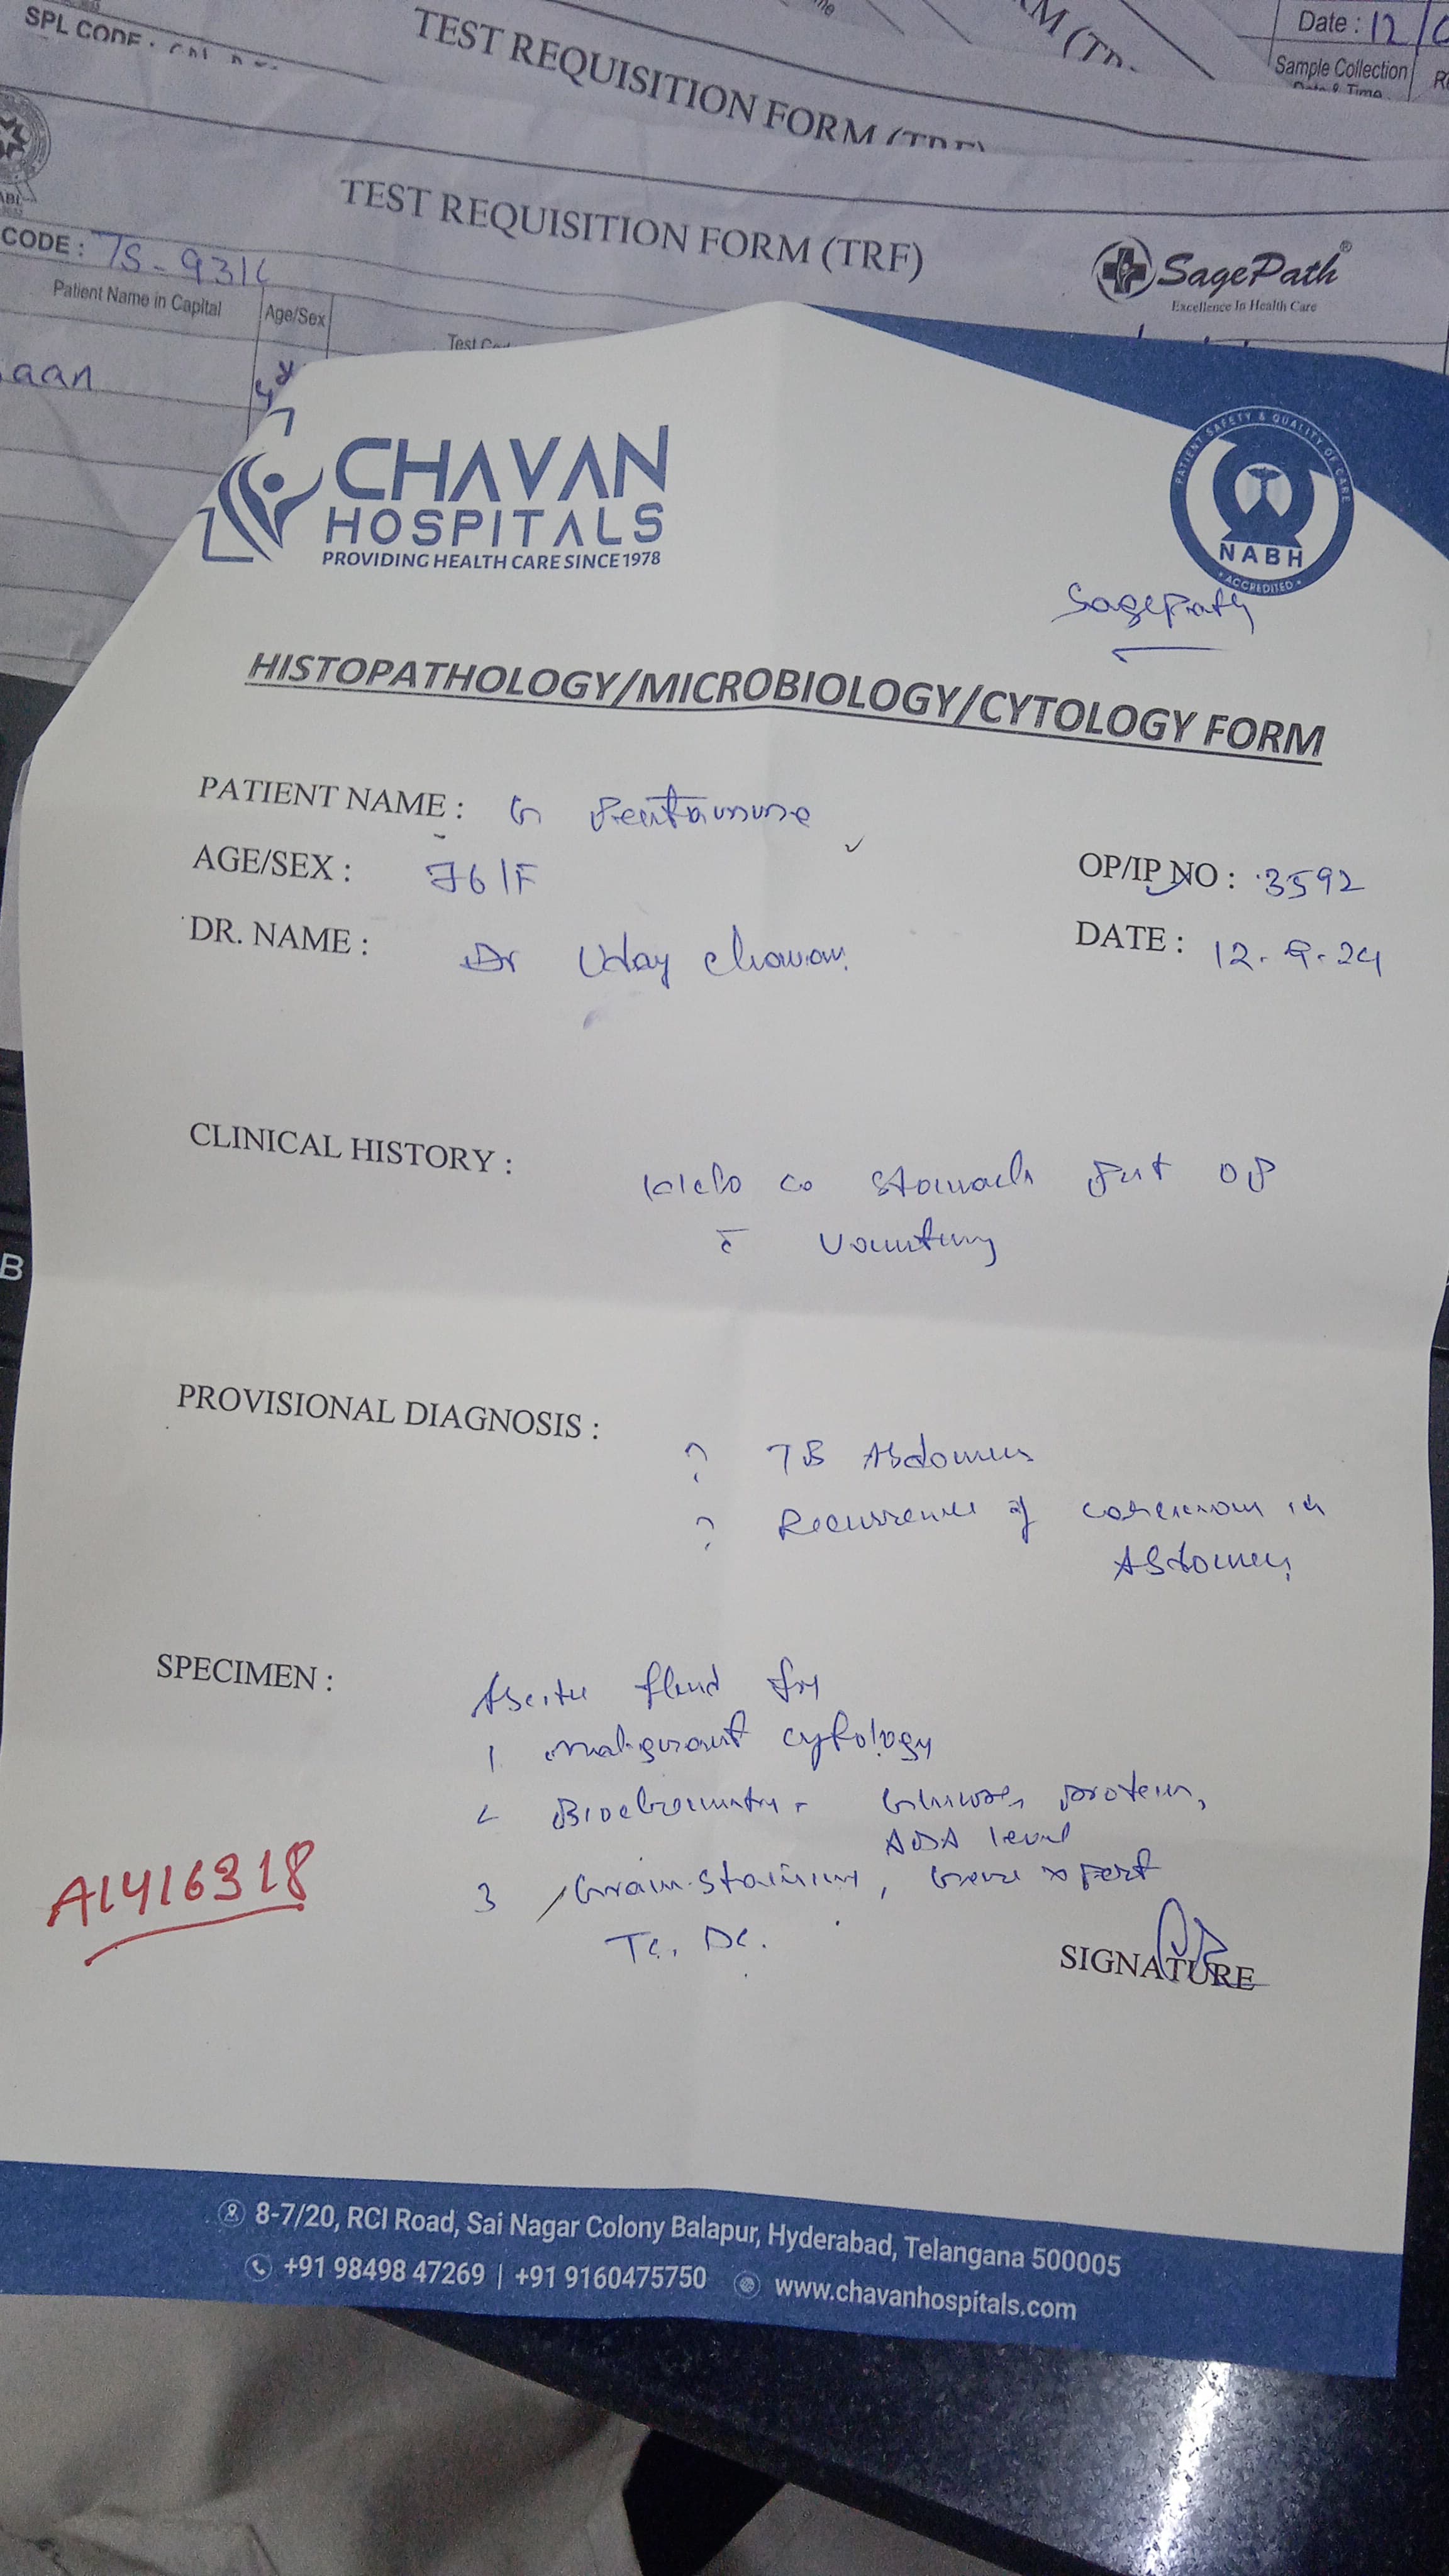 SPL CODE :
TEST REQUISITION FORM (TRF)
Date : 12/0
Sample Collection
Date & Time
TEST REQUISITION FORM (TRF)
SagePath®
Excellence In Health Care
CODE : TS-931
Patient Name in Capital
Age/Sex
Test
aan
CHAVAN
HOSPITALS
PROVIDING HEALTH CARE SINCE 1978
PATIENT SAFETY & QUALITY OF CARE
NABH
ACCREDITED
SagePath
HISTOPATHOLOGY/MICROBIOLOGY/CYTOLOGY FORM
PATIENT NAME : G
AGE/SEX : 76/F
OP/IP NO : 3592
DR. NAME : Dr Uday Chavan
DATE : 12.9.24
CLINICAL HISTORY : K/c/o Ca Stomach Post OP
c̄ Vomiting
PROVISIONAL DIAGNOSIS :
? TB Abdomen
? Recurrence of carcinoma in
Abdomen
SPECIMEN : Ascitic fluid for
1 malignant cytology
2 Biochemistry - Glucose, protein,
ADA level
3 Gram staining, Gene xpert
Tc, Dc.
A1416318
SIGNATURE
8-7/20, RCI Road, Sai Nagar Colony Balapur, Hyderabad, Telangana 500005
+91 98498 47269 | +91 9160475750 www.chavanhospitals.com
B